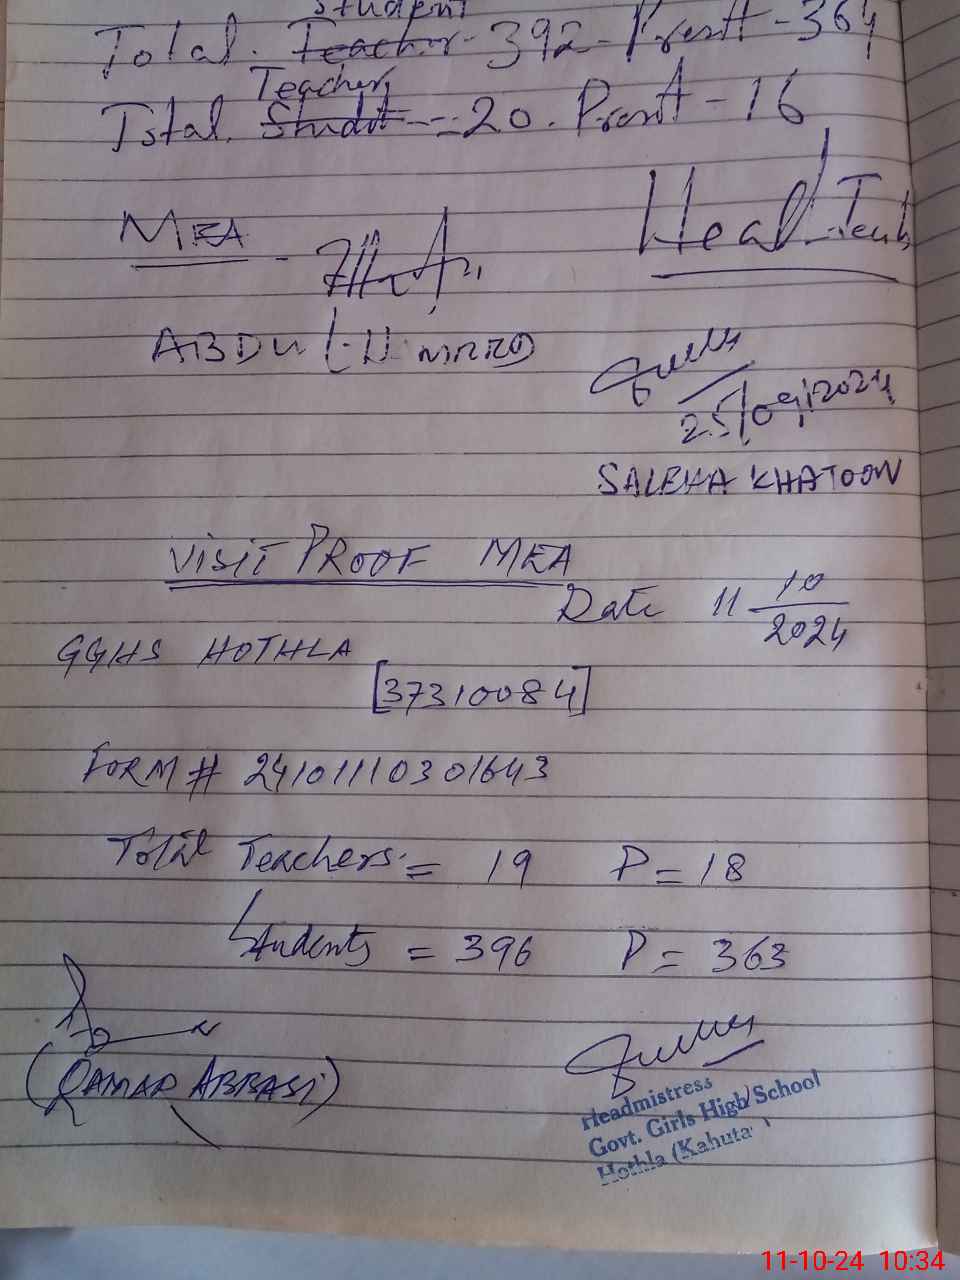 Student
Total. Teacher - 392 - Presntt - 364
Teacher
Total. Studnt -- = 20. Presnt - 16
MEA -
Head - Teach
ABDUL
25/09/2024
SALEHA KHATOON
VISIT PROOF MEA
Date 11 10/2024
GGHS HOTHLA
[37310084]
FORM # 24101110301643
Total Teachers = 19 P = 18
Students = 396 P = 363
(QAMAR ABBASI)
Headmistress
Govt. Girls High School
Hothla (Kahuta)
11-10-24 10:34